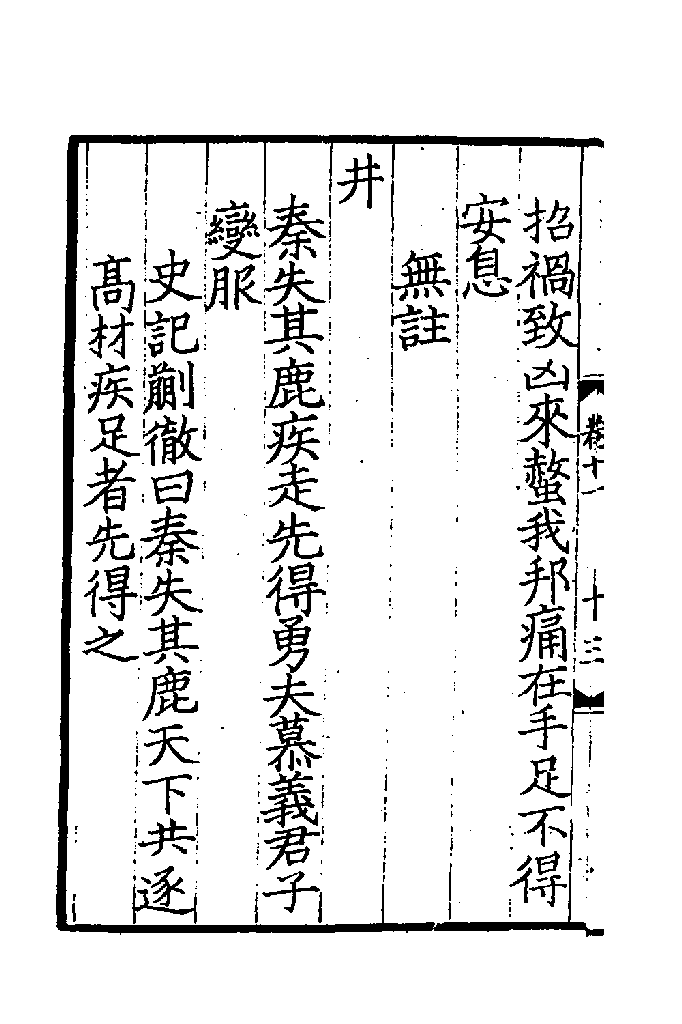 卷十一
十三
招禍致凶來螫我邦痛在手足不得
安息
無註
井
秦失其鹿疾走先得勇夫慕義君子
變服
史記蒯徹曰秦失其鹿天下共逐
髙材疾足者先得之